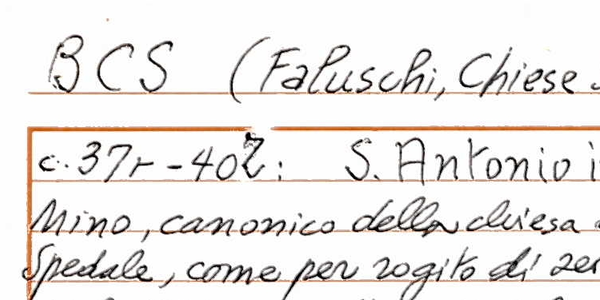 BCS (Faluschi, Chiese
c. 37r - 40r: S. Antonio i
Mino, canonico della chiesa
Spedale, come per rogito di ser